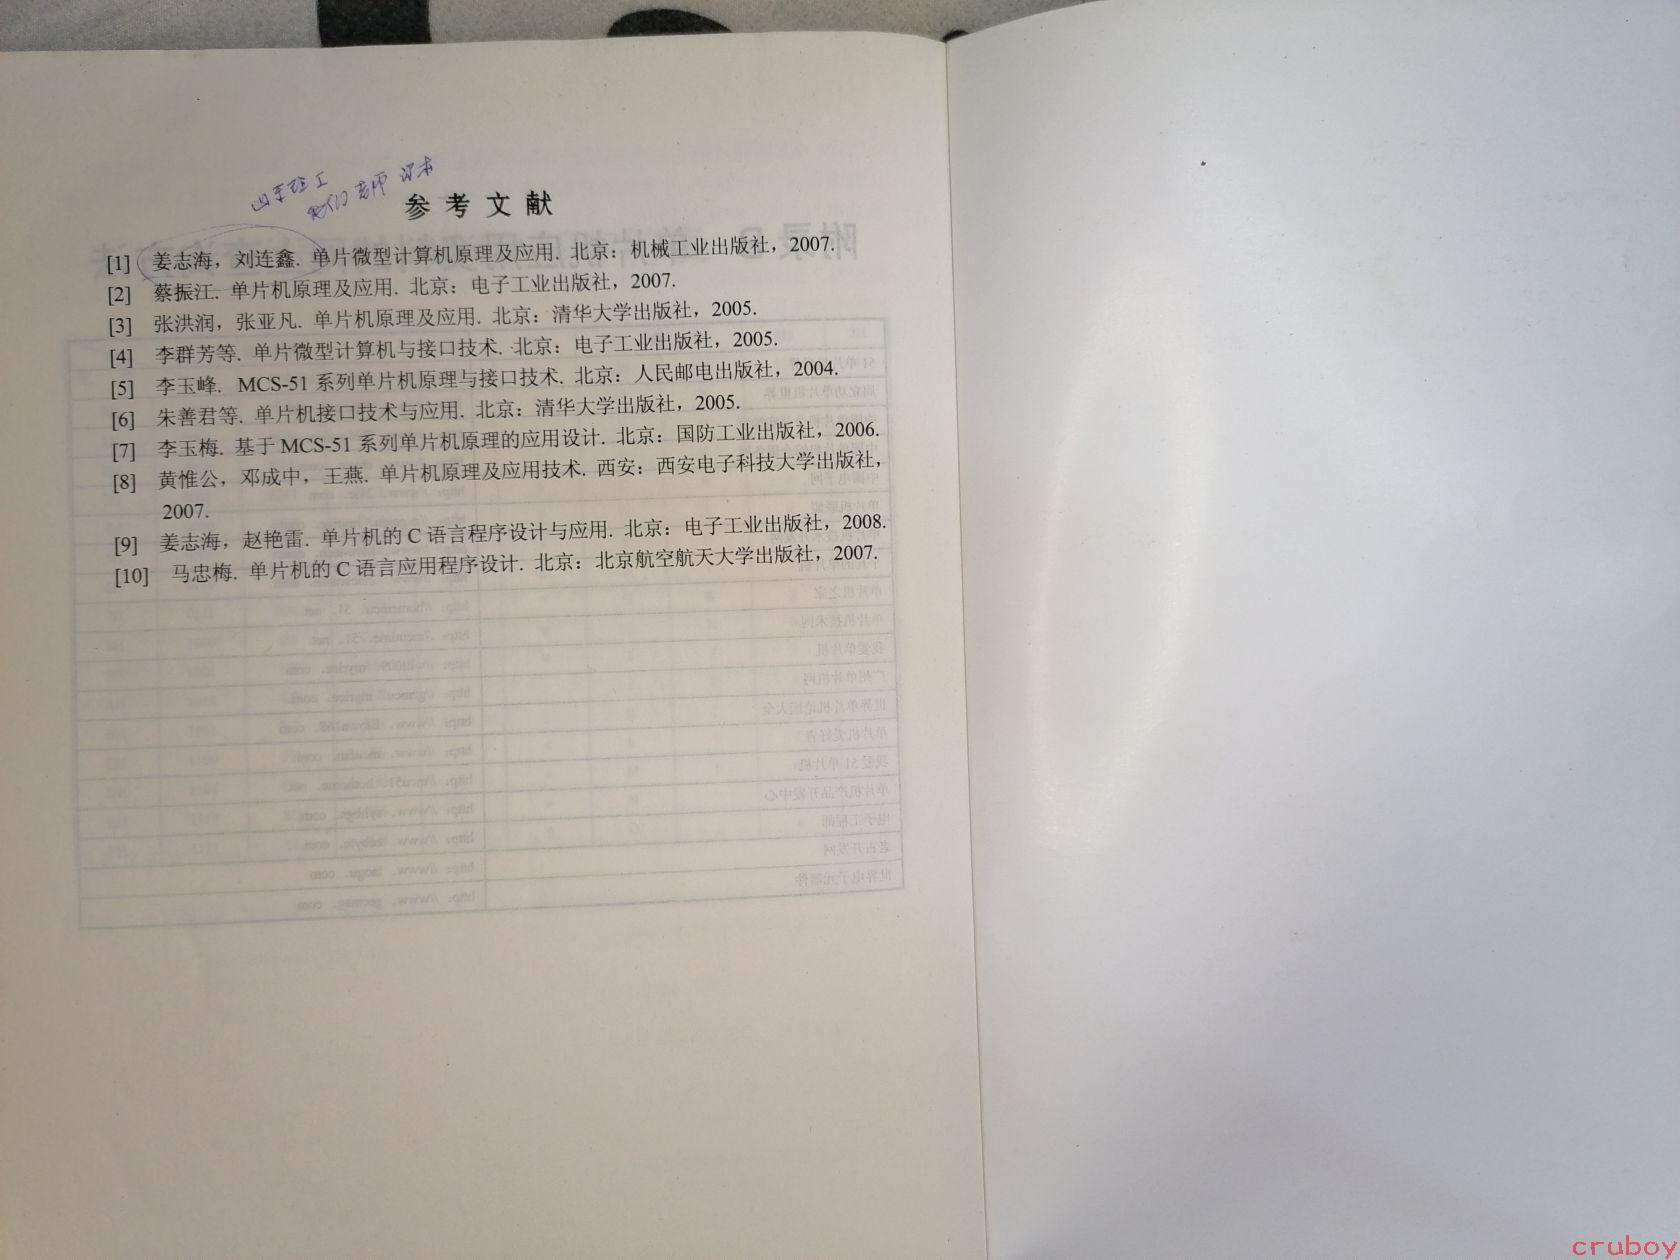 山东轻工
我们老师 课本
参考文献
[1] 姜志海，刘连鑫. 单片微型计算机原理及应用. 北京：机械工业出版社，2007.
[2] 蔡振江. 单片机原理及应用. 北京：电子工业出版社，2007.
[3] 张洪润，张亚凡. 单片机原理及应用. 北京：清华大学出版社，2005.
[4] 李群芳等. 单片微型计算机与接口技术. 北京：电子工业出版社，2005.
[5] 李玉峰. MCS-51 系列单片机原理与接口技术. 北京：人民邮电出版社，2004.
[6] 朱善君等. 单片机接口技术与应用. 北京：清华大学出版社，2005.
[7] 李玉梅. 基于 MCS-51 系列单片机原理的应用设计. 北京：国防工业出版社，2006.
[8] 黄惟公，邓成中，王燕. 单片机原理及应用技术. 西安：西安电子科技大学出版社，
2007.
[9] 姜志海，赵艳雷. 单片机的 C 语言程序设计与应用. 北京：电子工业出版社，2008.
[10] 马忠梅. 单片机的 C 语言应用程序设计. 北京：北京航空航天大学出版社，2007.
cruboy